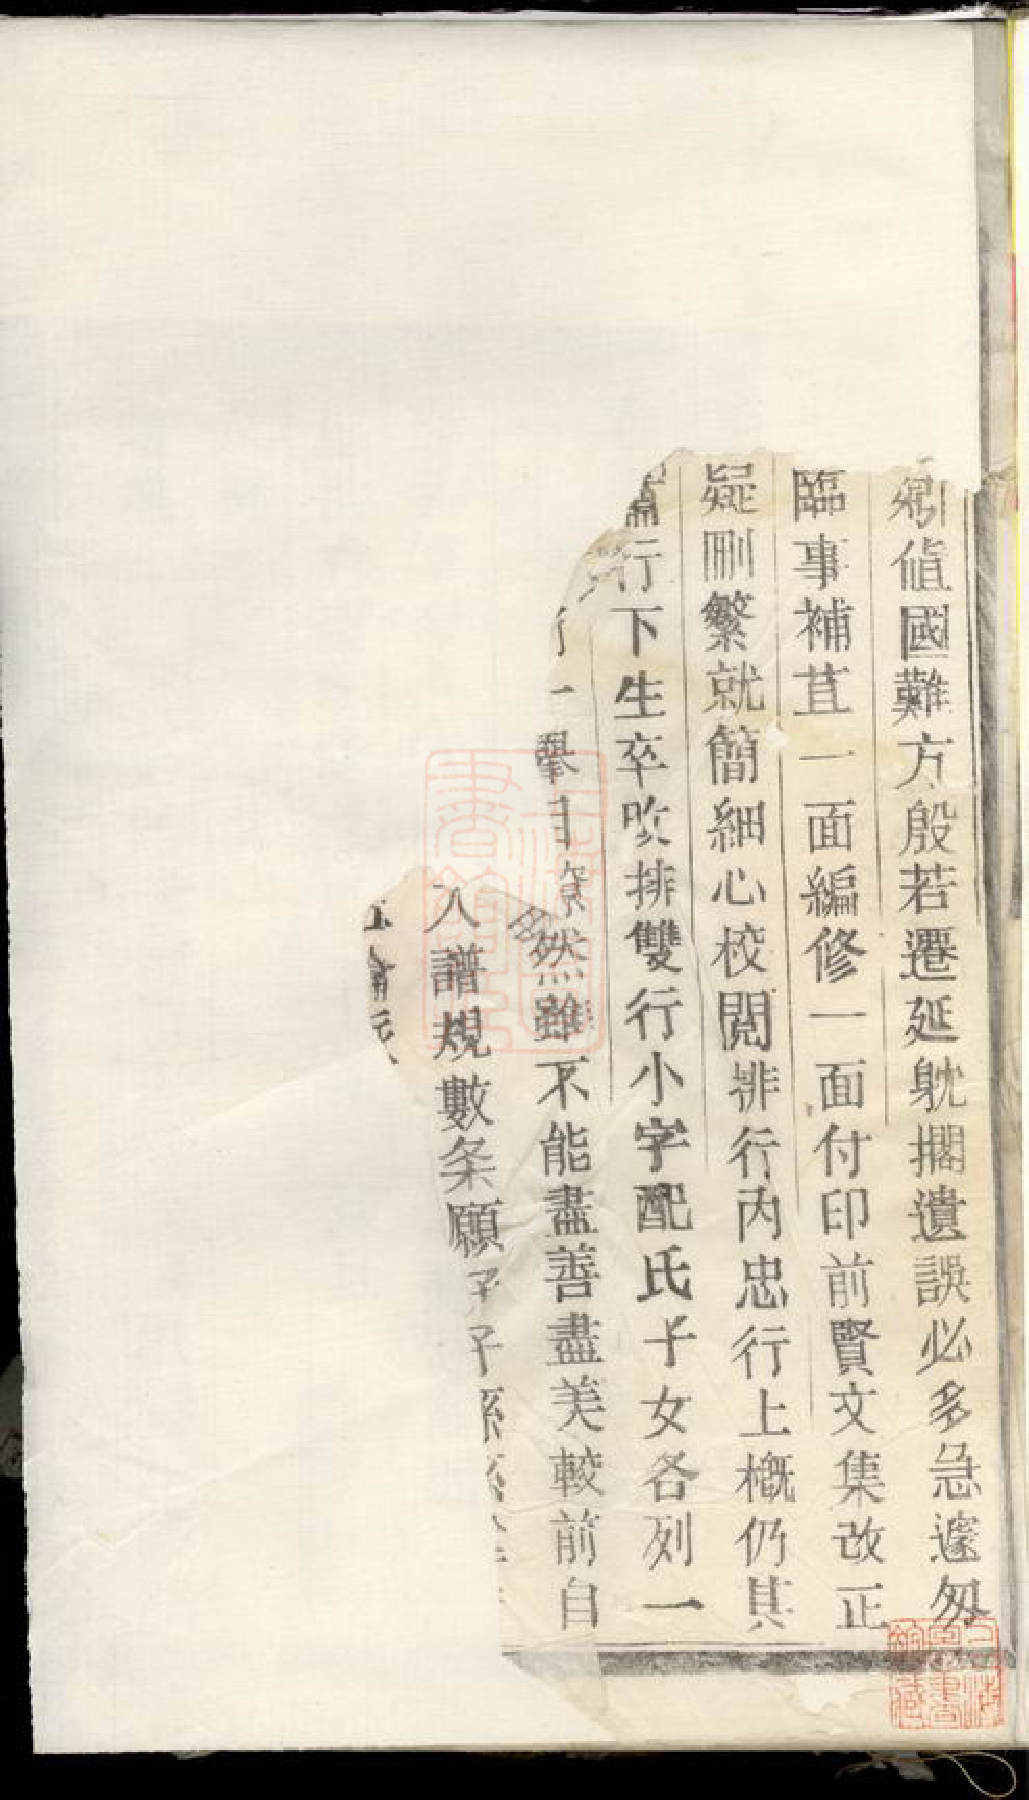 值國難方殷若遷延躭擱遺誤必多急遽匆
臨事補苴一面編修一面付印前賢文集改正
疑刪繁就簡細心校閱排行內忠行上概仍其
行下生卒吹排雙行小字配氏子女各列一
一舉目
然雖不能盡善盡美較前自
入譜規數条願
子孫